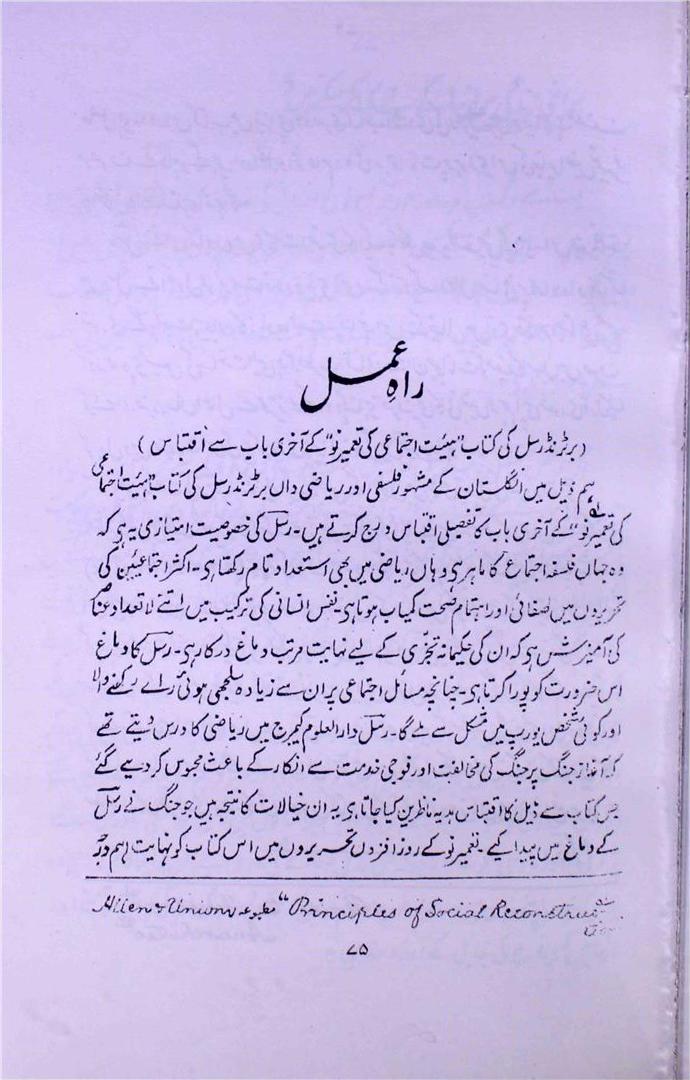 راہِ عمل
( برٹرنڈرسل کی کتاب "ہیئت اجتماعی کی تعمیر نو" کے آخری باب سے اقتباس )
ہم ذیل میں انگلستان کے مشہور فلسفی اور ریاضی داں برٹرنڈ رسل کی کتاب "ہیئت اجتماعی
کی تعمیر نو" کے آخری باب کا تفصیلی اقتباس درج کرتے ہیں۔ رسل کی خصوصیت امتیازی یہ ہی کہ
وہ جہاں فلسفۂ اجتماع کا ماہر ہی وہاں ریاضی میں بھی استعداد تام رکھتا ہی۔ اکثر اجتماعیین کی
تحریروں میں صفائی اور اہتمام صحت کمیاب ہوتا ہی۔ نفس انسانی کی ترکیب میں اتنے لا تعداد عناصر
کی آمیزشس ہی کہ ان کی حکیمانہ تجزی کے لیے نہایت مرتب دماغ درکار ہی۔ رسل کا دماغ
اس ضرورت کو پورا کرتا ہی۔ چنانچہ مسائل اجتماعی پر ان سے زیادہ سلجھی ہوئی رائے رکھنے والا
اور کوئی شخص یورپ میں مشکل سے ملے گا۔ رسل دارالعلوم کیمرج میں ریاضی کا درس دیتے تھے
کہ آغاز جنگ پر جنگ کی مخالفت اور فوجی خدمت سے انکار کے باعث محبوس کر دیے گئے
جس کتاب سے ذیل کا اقتباس ہدیہ ناظرین کیا جاتا ہی یہ ان خیالات کا نتیجہ ہیں جو جنگ نے رسل
کے دماغ میں پیدا کیے۔ تعمیر نو کے روز افزوں تحریروں میں اس کتاب کو نہایت اہم درجہ
لے "Principles of Social Reconstruction مطبوعہ Allen & Unions
۷۵